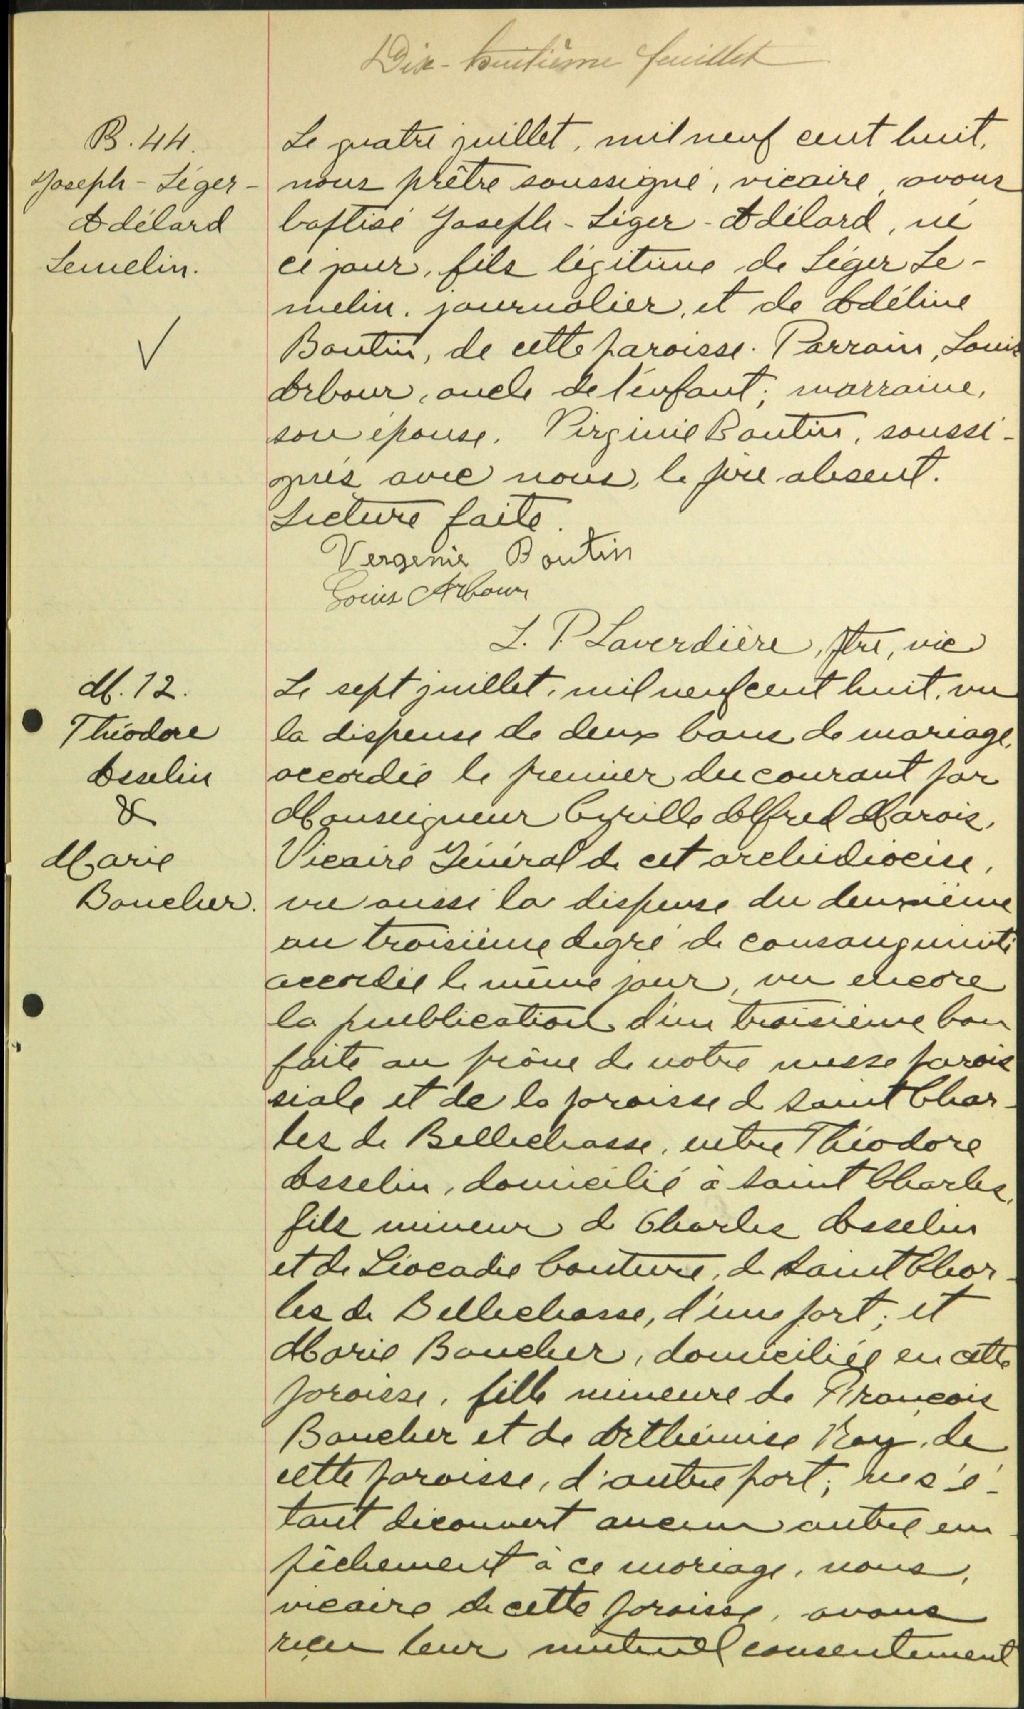 Dix-huitième feuillet
B. 44.
Joseph-Léger-
Adélard
Lemelin.
Le quatre juillet, mil neuf cent huit,
nous prêtre soussigné, vicaire, avons
baptisé Joseph-Léger-Adélard, né
ce jour, fils légitime de Léger Le-
melin, journalier, et de Adéline
Boutin, de cette paroisse. Parrain, Louis
Arbour, oncle de l'enfant; marraine,
son épouse, Virginie Boutin, soussi-
gnés avec nous, le père absent.
Lecture faite.
Vergenie Boutin
Louis Arbour
L. P. Laverdière, ptre, vic
M. 12.
Théodore
Asselin
&
Marie
Boucher.
Le sept juillet, mil neuf cent huit, vu
la dispense de deux bans de mariage,
accordée le premier du courant par
Monseigneur Cyrille Alfred Marois,
Vicaire Général de cet archidiocèse,
vu aussi la dispense du deuxième
au troisième degré de consanguinité
accordée le même jour, vu encore
la publication d'un troisième ban
faite au prône de notre messe parois
siale et de la paroisse de Saint Char-
les de Bellechasse, entre Théodore
Asselin, domicilié à Saint Charles,
fils mineur de Charles Asselin
et de Léocadie Couture, de Saint Char-
les de Bellechasse, d'une part; et
Marie Boucher, domiciliée en cette
paroisse, fille mineure de François
Boucher et de Arthémise Roy, de
cette paroisse, d'autre part; ne s'é-
tant découvert aucun autre em-
pêchement à ce mariage, nous,
vicaire de cette paroisse, avons
reçu leur mutuel consentement